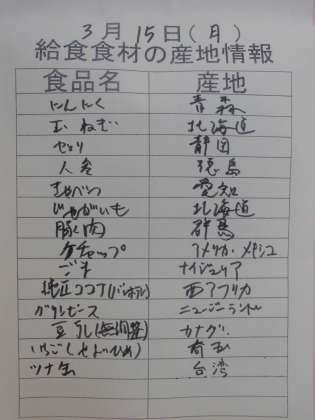 3月15日(月)
給食食材の産地情報
食品名 産地
にんにく 青森
玉ねぎ 北海道
セロリ 静岡
人参 徳島
きゃべつ 愛知
じゃがいも 北海道
豚肉 群馬
ケチャップ アメリカ・メキシコ
ごま ナイジェリア
純正ココア(バンホーテン) 西アフリカ
グリンピース ニュージーランド
豆乳(無調整) カナダ
いちご(
ツナ缶 台湾